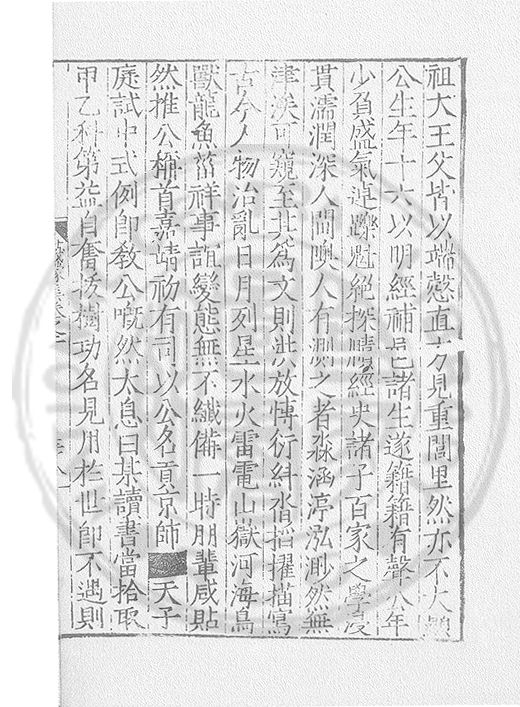 祖大王父皆以端慤直方見重閭里然亦不大顯
公生年十六以明經補邑諸生遂籍籍有聲公年
少負盛氣逴躒魁絕探賾經史諸子百家之學浸
貫濡潤深入閫隩人有測之者淼涵渟泓渺然無
津涘可窺至其為文則洪放博衍紏揩擢描寫
古今人物治亂日月列星水火雷電山嶽河海鳥
獸龍魚菑祥事誼變態無不纖備一時朋輩咸貼
然推公稱首嘉靖初有司以公名貢京師 天子
庭試中式例即教公嘅然太息曰某讀書當拾取
甲乙科第益自奮拔樹功名見用於世即不遇則